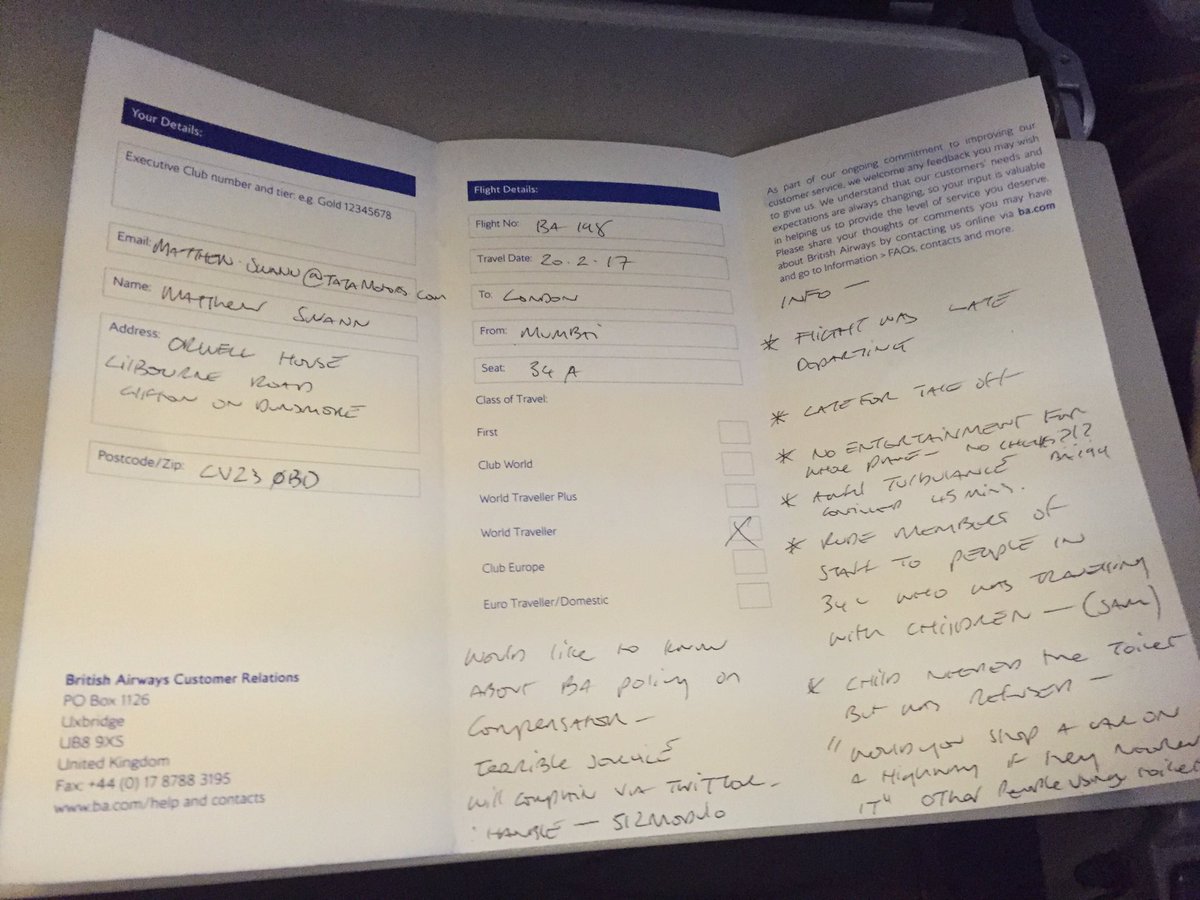 Your Details:
Executive Club number and tier: e.g. Gold 12345678
Email: MATTHEW.SWANN@TATAMOTORS.COM
Name: MATTHEW SWANN
Address: ORWELL HOUSE
LILBOURNE ROAD
CLIFTON ON DUNSMORE
Postcode/Zip: CV23 0BD
British Airways Customer Relations
PO Box 1126
Uxbridge
UB8 9XS
United Kingdom
Fax: +44 (0) 17 8788 3195
www.ba.com/help and contacts
Flight Details:
Flight No: BA 198
Travel Date: 20.2.17
To: LONDON
From: MUMBAI
Seat: 34 A
Class of Travel:
First
Club World
World Traveller Plus
World Traveller X
Club Europe
Euro Traveller/Domestic
WOULD like to know
ABOUT BA policy on
COMPENSATION -
TERRIBLE SERVICE
Will complain VIA TWITTER -
HANDLE - SIZMODLO
As part of our ongoing commitment to improving our
customer service, we welcome any feedback you may wish
to give us. We understand that our customers' needs and
expectations are always changing, so your input is valuable
in helping us to provide the level of service you deserve.
Please share your thoughts or comments you may have
about British Airways by contacting us online via ba.com
and go to Information > FAQs, contacts and more.
INFO -
* FLIGHT WAS LATE
DEPARTING
* LATE FOR TAKE OFF
* NO ENTERTAINMENT FOR
WHOLE PLANE - NO CHECKS?!?
* AWFUL TURBULANCE BA194
CONTINUED 45 MINS.
* RUDE MEMBERS OF
STAFF TO PEOPLE IN
34C WHO WAS TRAVELLING
WITH CHILDREN - (SAM)
* CHILD NEEDED THE TOILET
BUT WAS REFUSED -
"WOULD YOU STOP A CAR ON
A HIGHWAY IF THEY NEEDED
IT" OTHER PEOPLE USING TOILET